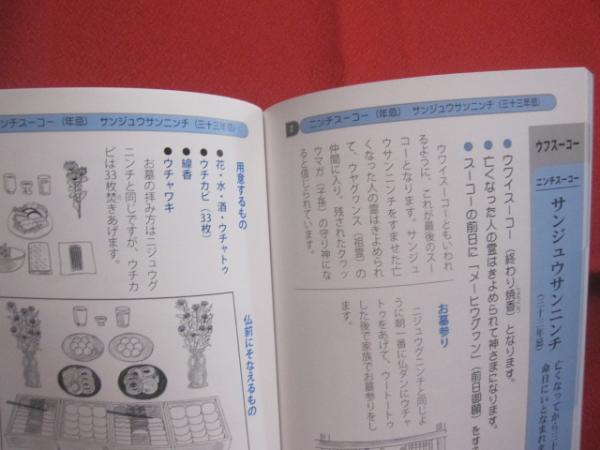 ニンチスーコー（年忌）　サンジュウサンニンチ（三十三年忌）
ウフスーコー
ニンチスーコー
サンジュウサンニンチ
（三十三年忌）
亡くなってから三十
命日にいとなまれ
●ウワイスーコー（終わり焼香）となります。
●亡くなった人の霊はきよめられて神さまになります。
●スーコーの前日に「メーヒウグヮン」（前日御願）を
ウワイスーコーともいわれ
るように、これが最後のスー
コーとなります。サンジュ
ウサンニンチをすませた亡
くなった人の霊はきよめられ
て、ウヤグヮンス（祖霊）の
仲間に入り、残されたクヮッ
ウマガ（子孫）の守り神にな
ると信じられています。
お墓参り
ニジュウグニンチと同じよ
うに朝一番に仏ダンにウチャ
トゥをあげて、ウートートゥ
した後で家族でお墓参りをし
ます。
ンチスーコー（年忌）　サンジュウサンニンチ（三十三年忌）
用意するもの
●花・水・酒・ウチャトゥ
●ウチカビ（33枚）
●線香
●ウチャワキ
お墓の拝み方はニジュウグ
ニンチと同じですが、ウチカ
ビは33枚焚きあげます。
仏前にそなえるもの